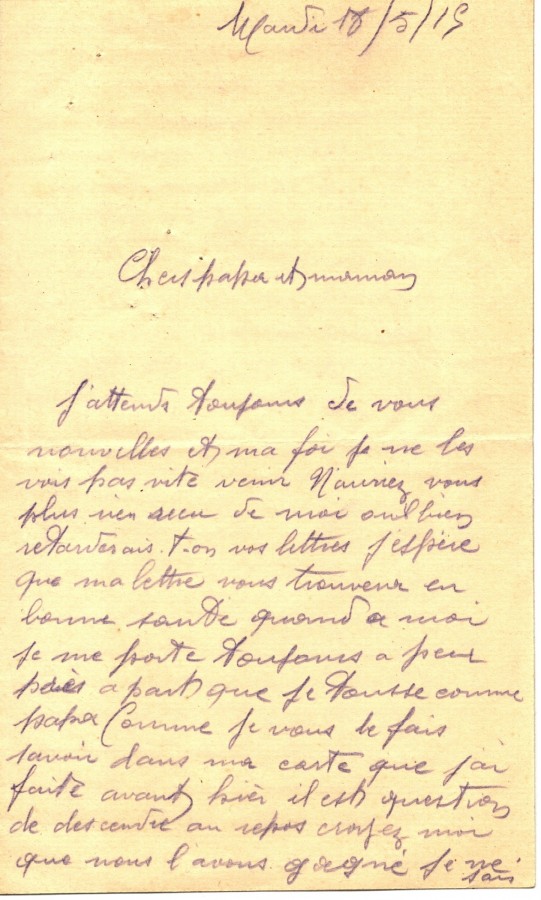 Mardi 18/5/15
Chers papa et maman
J'attends toujours de vous
nouvelles et ma foi je ne les
vois pas vite venir N'auriez vous
plus rien recu de moi oubien
retarderais-t-on vos lettres J'espère
que ma lettre vous trouvera en
bonne santé quand a moi
je me porte toujours a peu
près a part que je tousse comme
papa Comme je vous le fais
savoir dans ma carte que j'ai
faite avant hièr il est question
de descendre au repos croyez moi
que nous l'avons gagné je ne
sais